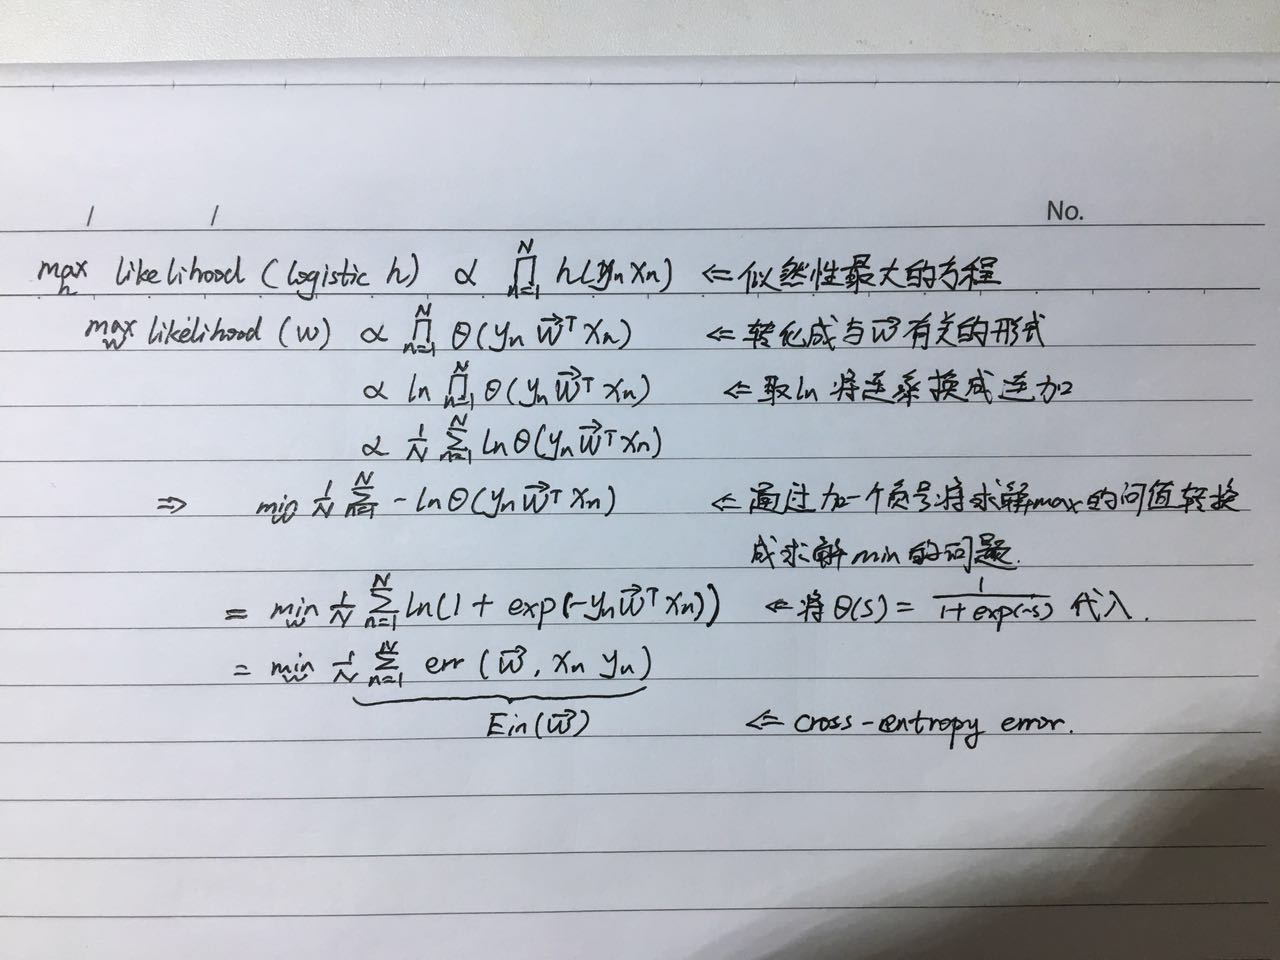 / / No.
max h likelihood (logistic h) ∝ ∏ n=1 N h(yn xn) ⇐ 似然性最大的方程
max w likelihood (w) ∝ ∏ n=1 N θ(yn w⃗ᵀ xn) ⇐ 转化成与w⃗有关的形式
∝ ln ∏ n=1 N θ(yn w⃗ᵀ xn) ⇐ 取ln 将连乘换成连加
∝ 1/N ∑ n=1 N ln θ(yn w⃗ᵀ xn)
⇒ min w 1/N ∑ n=1 N - ln θ(yn w⃗ᵀ xn) ⇐ 通过加一个负号将求解max的问值转换
成求解min的问题.
= min w 1/N ∑ n=1 N ln(1 + exp(-yn w⃗ᵀ xn)) ⇐ 将θ(s) = 1/(1+exp(-s)) 代入.
= min w 1/N ∑ n=1 N err (w⃗, xn yn)
Ein(w⃗) ⇐ cross-entropy error.